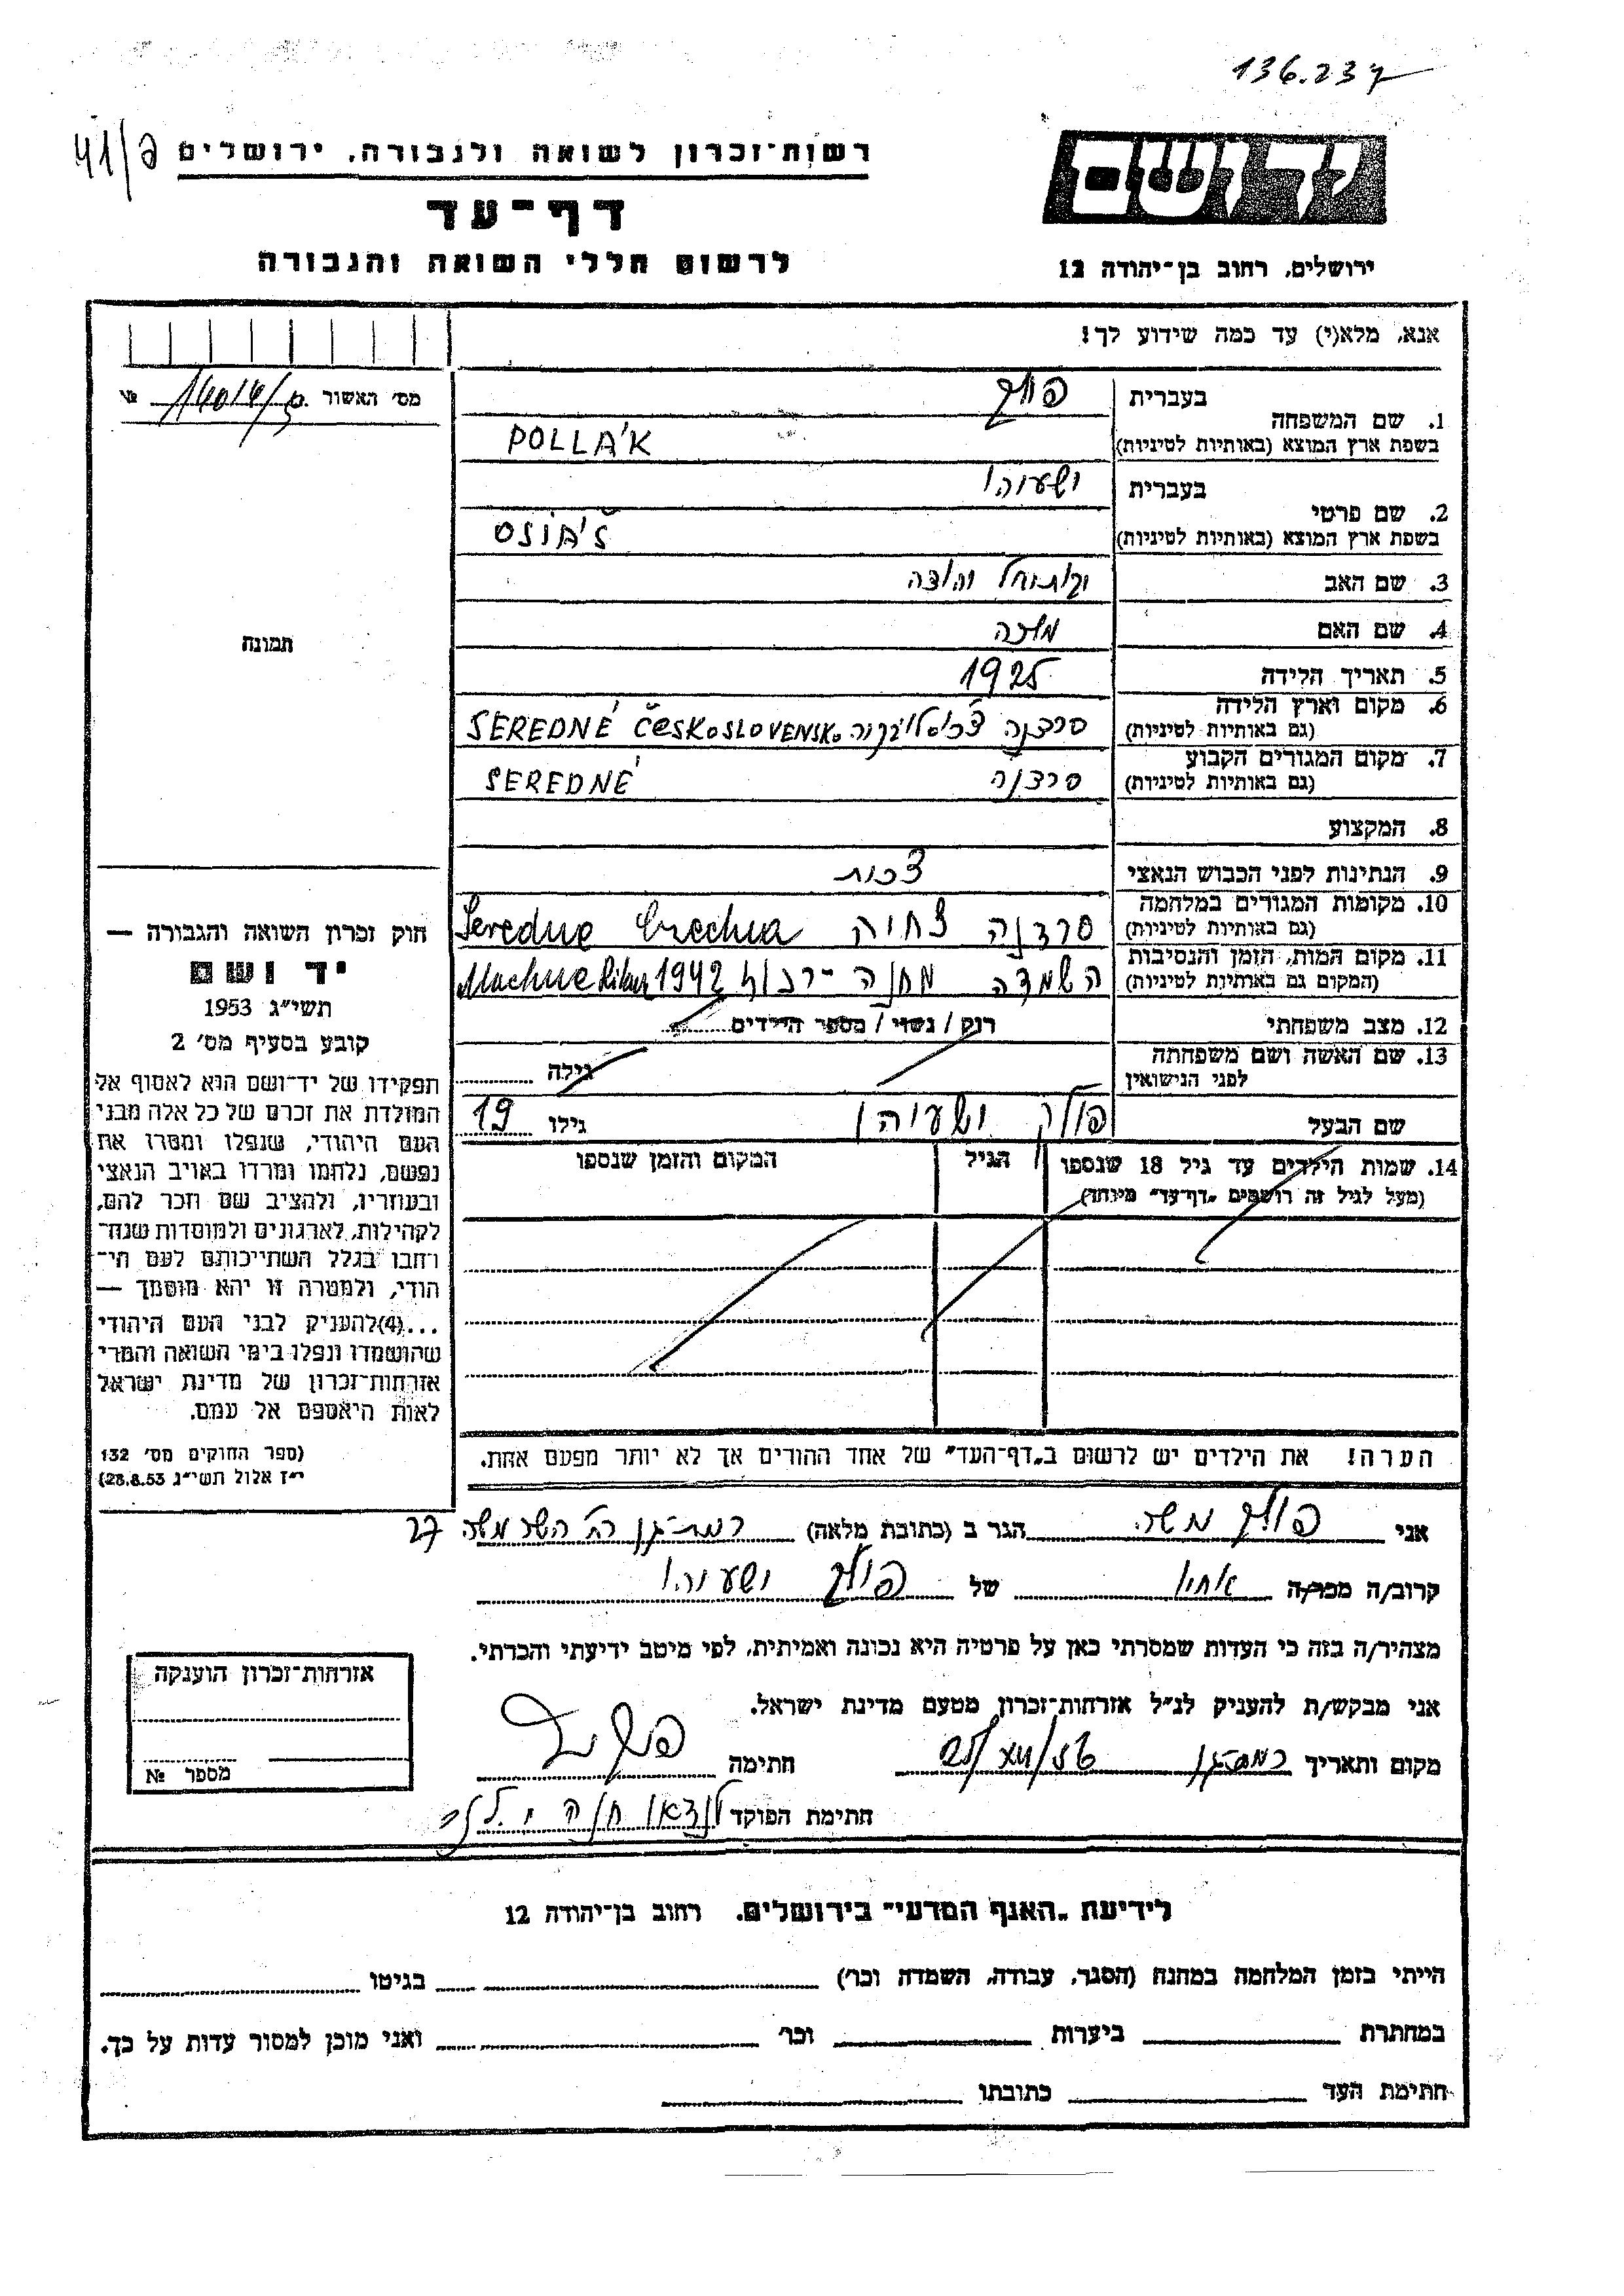 136.237
41/פ
רשות־זכרון לשואה ולגבורה, ירושלים
דף־עד
לרשום חללי השואה והגבורה
יד ושם
ירושלים, רחוב בן־יהודה 12
אנא, מלא(י) עד כמה שידוע לך!
מס׳ האשור №
1. שם המשפחה
בעברית פולק
בשפת ארץ המוצא (באותיות לטיניות) POLLA'K
2. שם פרטי
בעברית ישעיהו
בשפת ארץ המוצא (באותיות לטיניות) OSIA'Š
3. שם האב יקותיאל יהודה
4. שם האם מלכה
5. תאריך הלידה 1925
6. מקום וארץ הלידה
(גם באותיות לטיניות) סרדנה SEREDNÉ ČESKOSLOVENSKO
7. מקום המגורים הקבוע
(גם באותיות לטיניות) סרדנה SEREDNÉ
8. המקצוע
9. הנתינות לפני הכבוש הנאצי צכית
10. מקומות המגורים במלחמה
(גם באותיות לטיניות) סרדנה צחיה Seredne
11. מקום המות, הזמן והנסיבות
(המקום גם באותיות לטיניות) השמדה מחנה 1942 Machne
12. מצב משפחתי רוק / נשוי / מספר הילדים
13. שם האשה ושם משפחתה
לפני הנישואין גילה
שם הבעל פולק ישעיהו גילו 19
14. שמות הילדים עד גיל 18 שנספו הגיל המקום והזמן שנספו
(מעל לגיל זה רושמים „דף־עד״ מיוחד)
הערה! את הילדים יש לרשום ב„דף־העד״ של אחד ההורים אך לא יותר מפעם אחת.
תמונה
חוק זכרון השואה והגבורה —
יד ושם
תשי״ג 1953
קובע בסעיף מס׳ 2
תפקידו של יד־ושם הוא לאסוף אל
המולדת את זכרם של כל אלה מבני
העם היהודי, שנפלו ומסרו את
נפשם, נלחמו ומרדו באויב הנאצי
ובעוזריו, ולהציב שם וזכר להם,
לקהילות, לארגונים ולמוסדות שנח־
רחבו בגלל השתייכותם לעם הי־
הודי, ולמטרה זו יהא מוסמך —
...(4)להעניק לבני העם היהודי
שהושמדו ונפלו בימי השואה והמרי
אזרחות־זכרון של מדינת ישראל
לאות היאספם אל עמם.
(ספר החוקים מס׳ 132
י״ז אלול תשי״ג 28.8.53)
אני פולק משה הגר ב (כתובת מלאה) רמת־גן רח׳ משה 27
קרוב/ה מכר/ה אחיו של פולק ישעיהו
מצהיר/ה בזה כי העדות שמסרתי כאן על פרטיה היא נכונה ואמיתית, לפי מיטב ידיעתי והכרתי.
אני מבקש/ת להעניק לנ״ל אזרחות־זכרון מטעם מדינת ישראל.
מקום ותאריך רמת־גן 25/XII/56 חתימה
חתימת הפוקד לנדאו חנה
אזרחות־זכרון הוענקה
מספר №
לידיעת „האגף המדעי״ בירושלים. רחוב בן־יהודה 12
הייתי בזמן המלחמה במחנח (הסגר, עבודה, השמדה וכר׳) בגיטו
במחתרת ביערות וכר׳ ואני מוכן למסור עדות על כך.
חתימת העד כתובתו